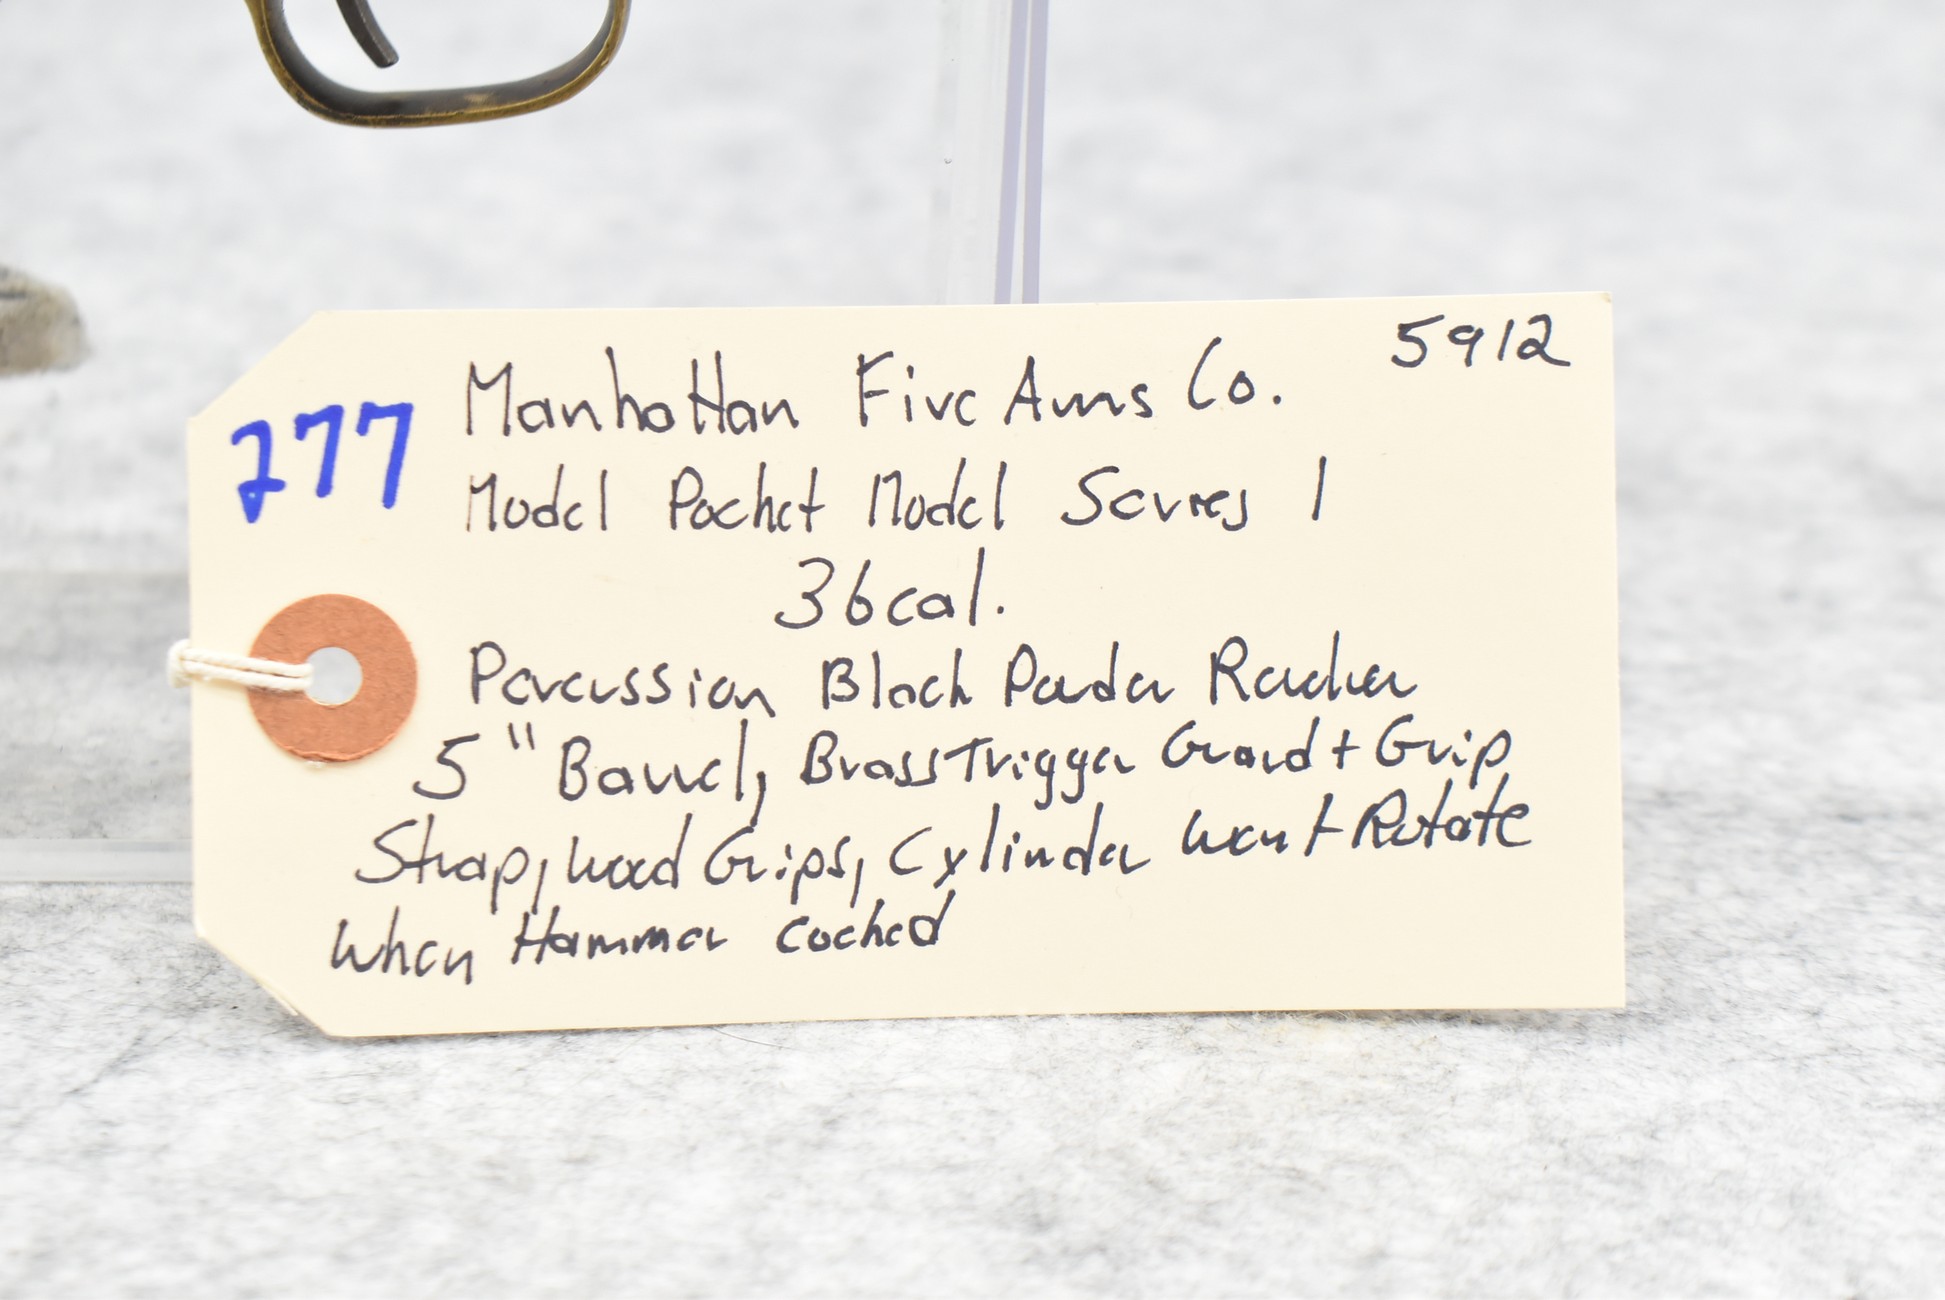 5912
277
Manhattan Fire Arms Co.
Model Pocket Model Series 1
36cal.
Percussion Black Powder Revolver
5" Barrel, Brass Trigger Guard + Grip
Strap, Wood Grips, Cylinder Won't Rotate
When Hammer Cocked